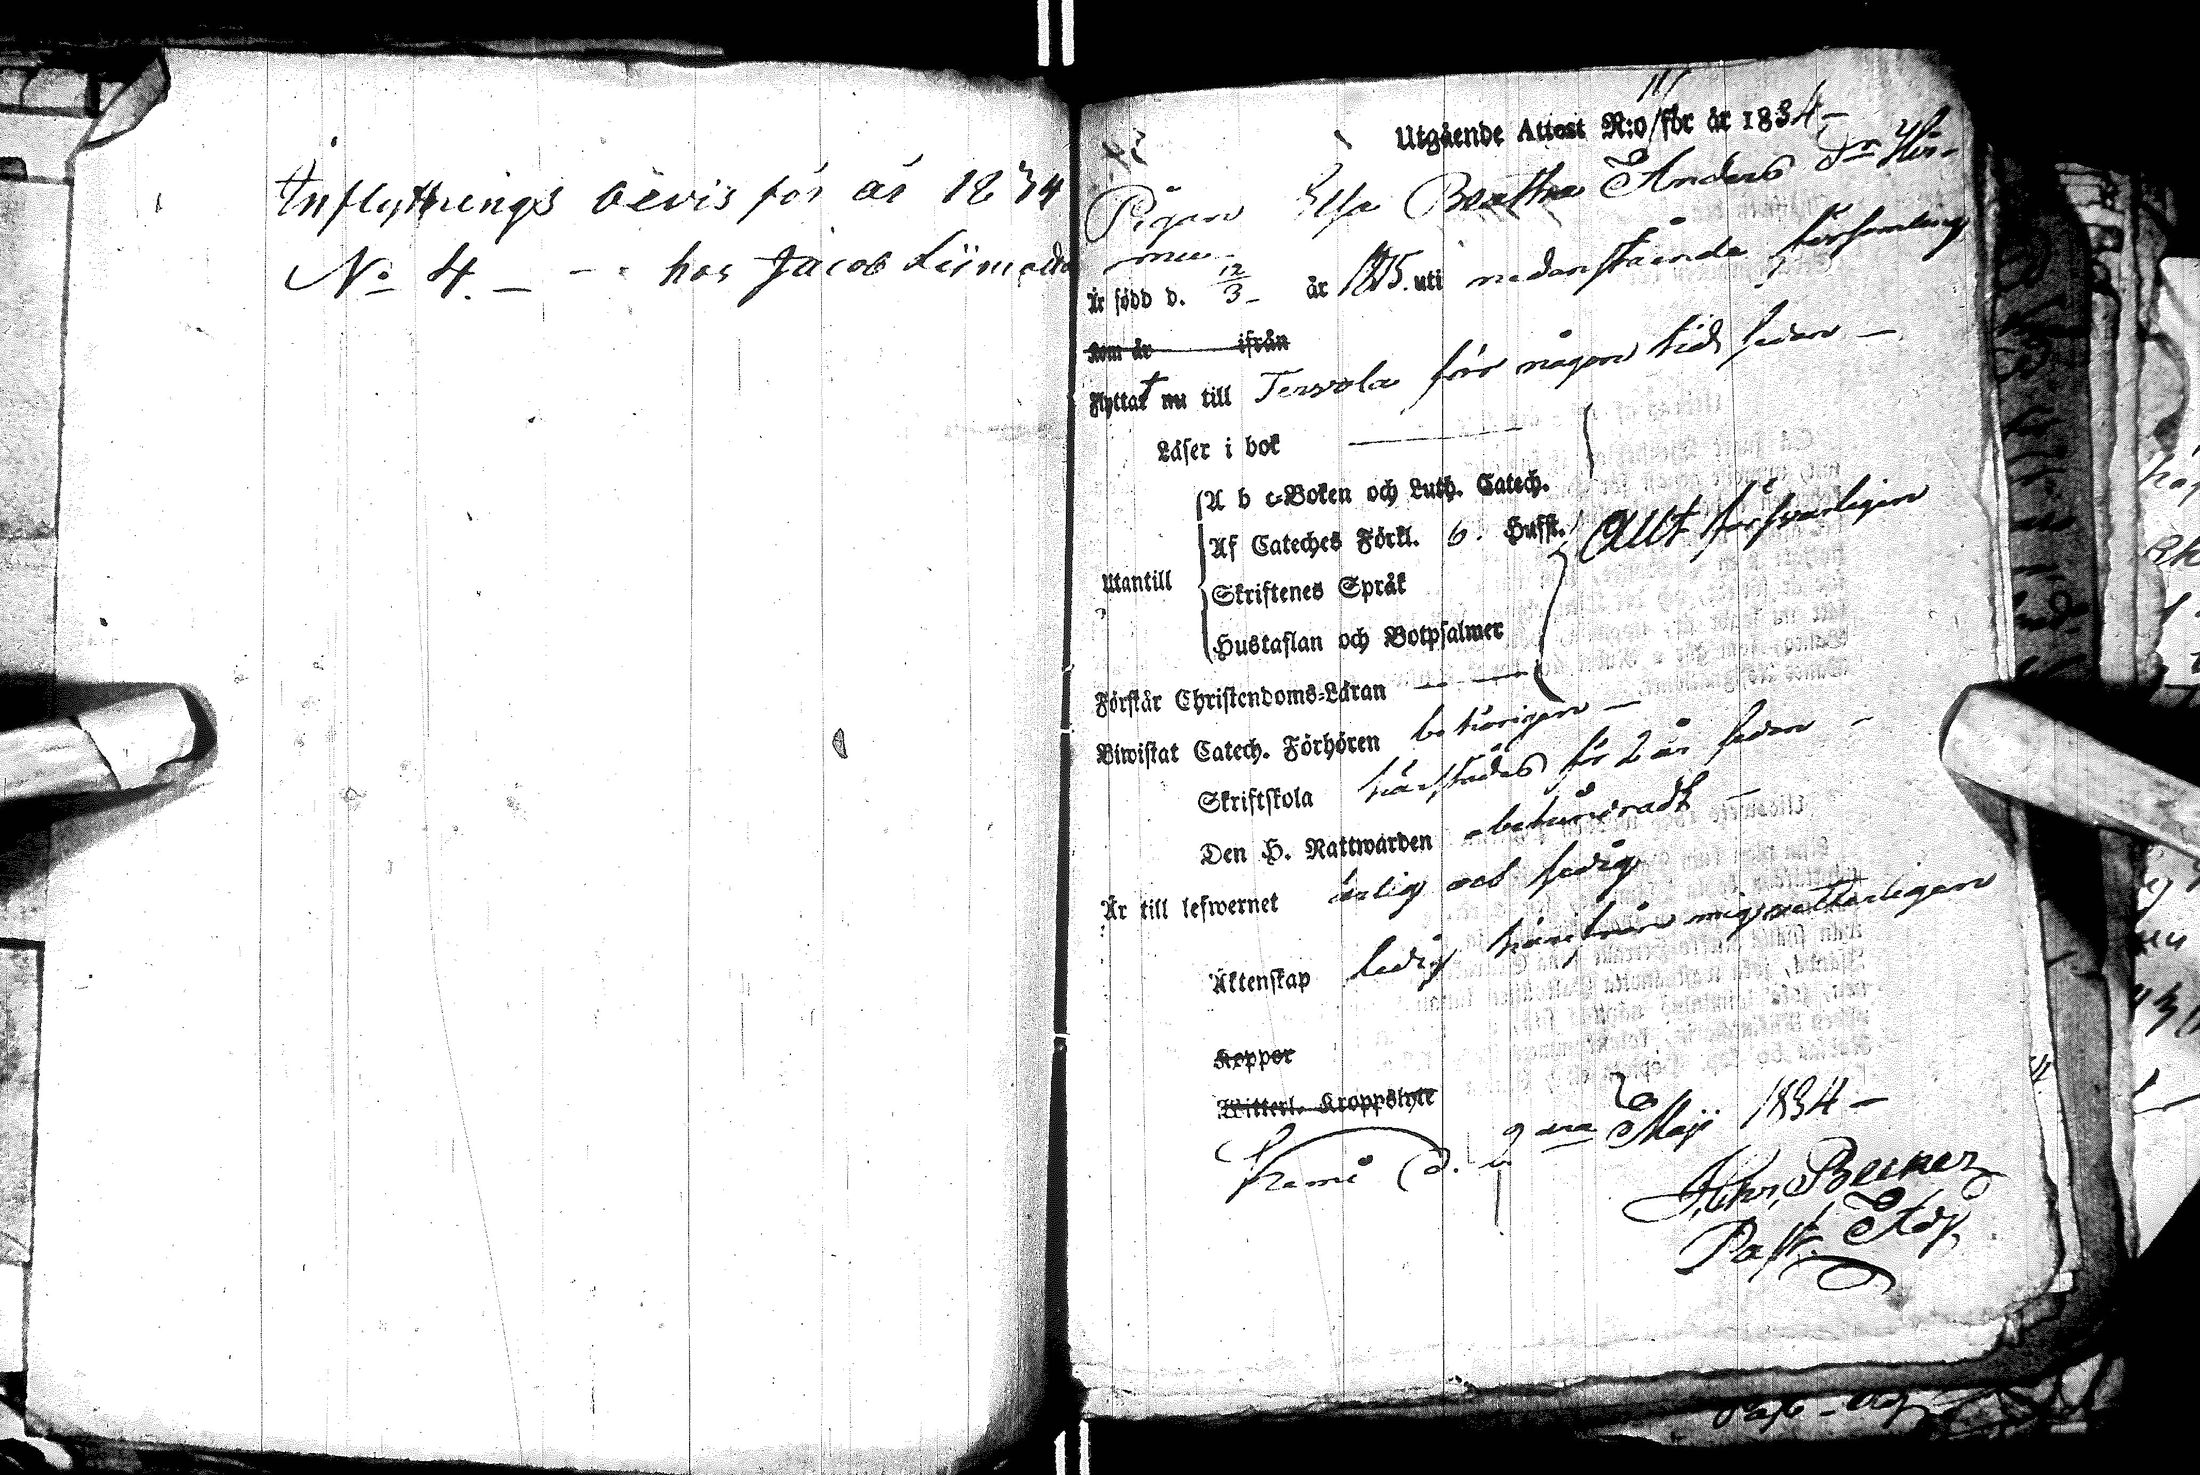 Inflyttnings bevis för år 1834
No 4. — - hos Jacob
Utgående Attest N:o för år 1834 —
Pigan Elsa Beatha Anders dr
Är född d. 12/3 - år 1815. uti nedanstående församling
Kom år ifrån
Flyttat nu till Tervola för någon tid sedan —
Läser i bok
A b c-Boken och Luth. Catech.
Af Cateches Förkl. 6. Hufst. Allt försvarligen
Utantill
Skriftenes Språk
Hustaflan och Botpsalmer
Förstår Christendoms-Läran
Biwistat Catech. Förhören behörigen —
Skriftskola härstädes för 2 år sedan -
Den H. Nattwarden obehindradt —
Är till lefwernet ärlig och sedig
Äktenskap ledig härifrån mig vetterligen
Koppor
Witterl. Kroppslyte
Kemi d. 2 dra Maji 1834 —
Past. Adj.